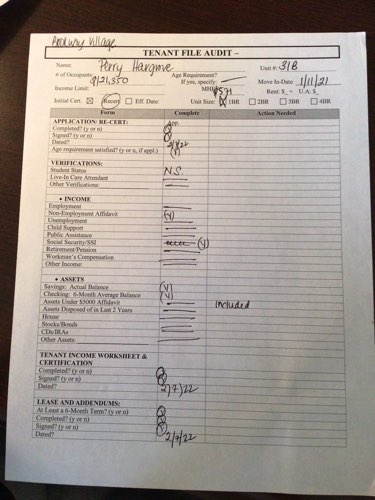 Village
TENANT FILE AUDIT –
Name: Perry Hargrove Unit #: 31B
# of Occupants: Age Requirement?
$21,350 If yes, specify: — Move In-Date 1/11/21
Income Limit: MHI $571 Rent: $_+ U.A: $_
Initial Cert. ☒ Recert. ☐ Eff. Date: Unit Size: ☒ 1BR ☐ 2BR ☐ 3BR ☐ 4BR
Form Complete Action Needed
APPLICATION/ RE-CERT: App.
Completed? (y or n) Y
Signed? (y or n) Y
Dated? 2/7/22
Age requirement satisfied? (y or n, if appl.) (Y)
VERIFICATIONS:
Student Status N.S.
Live-In Care Attendant
Other Verifications:
• INCOME
Employment
Non-Employment Affidavit (V)
Unemployment
Child Support
Public Assistance
Social Security/SSI (V)
Retirement/Pension
Workman's Compensation
Other Income:
• ASSETS
Savings: Actual Balance (V)
Checking: 6-Month Average Balance (V)
Assets Under $5000 Affidavit included
Assets Disposed of in Last 2 Years
House
Stocks/Bonds
CDs/IRAs
Other Assets:
TENANT INCOME WORKSHEET &
CERTIFICATION
Completed? (y or n) Y
Signed? (y or n) Y
Dated? 2/7/22
LEASE AND ADDENDUMS:
At Least a 6-Month Term? (y or n) Y
Completed? (y or n) Y
Signed? (y or n) Y
Dated? 2/7/22